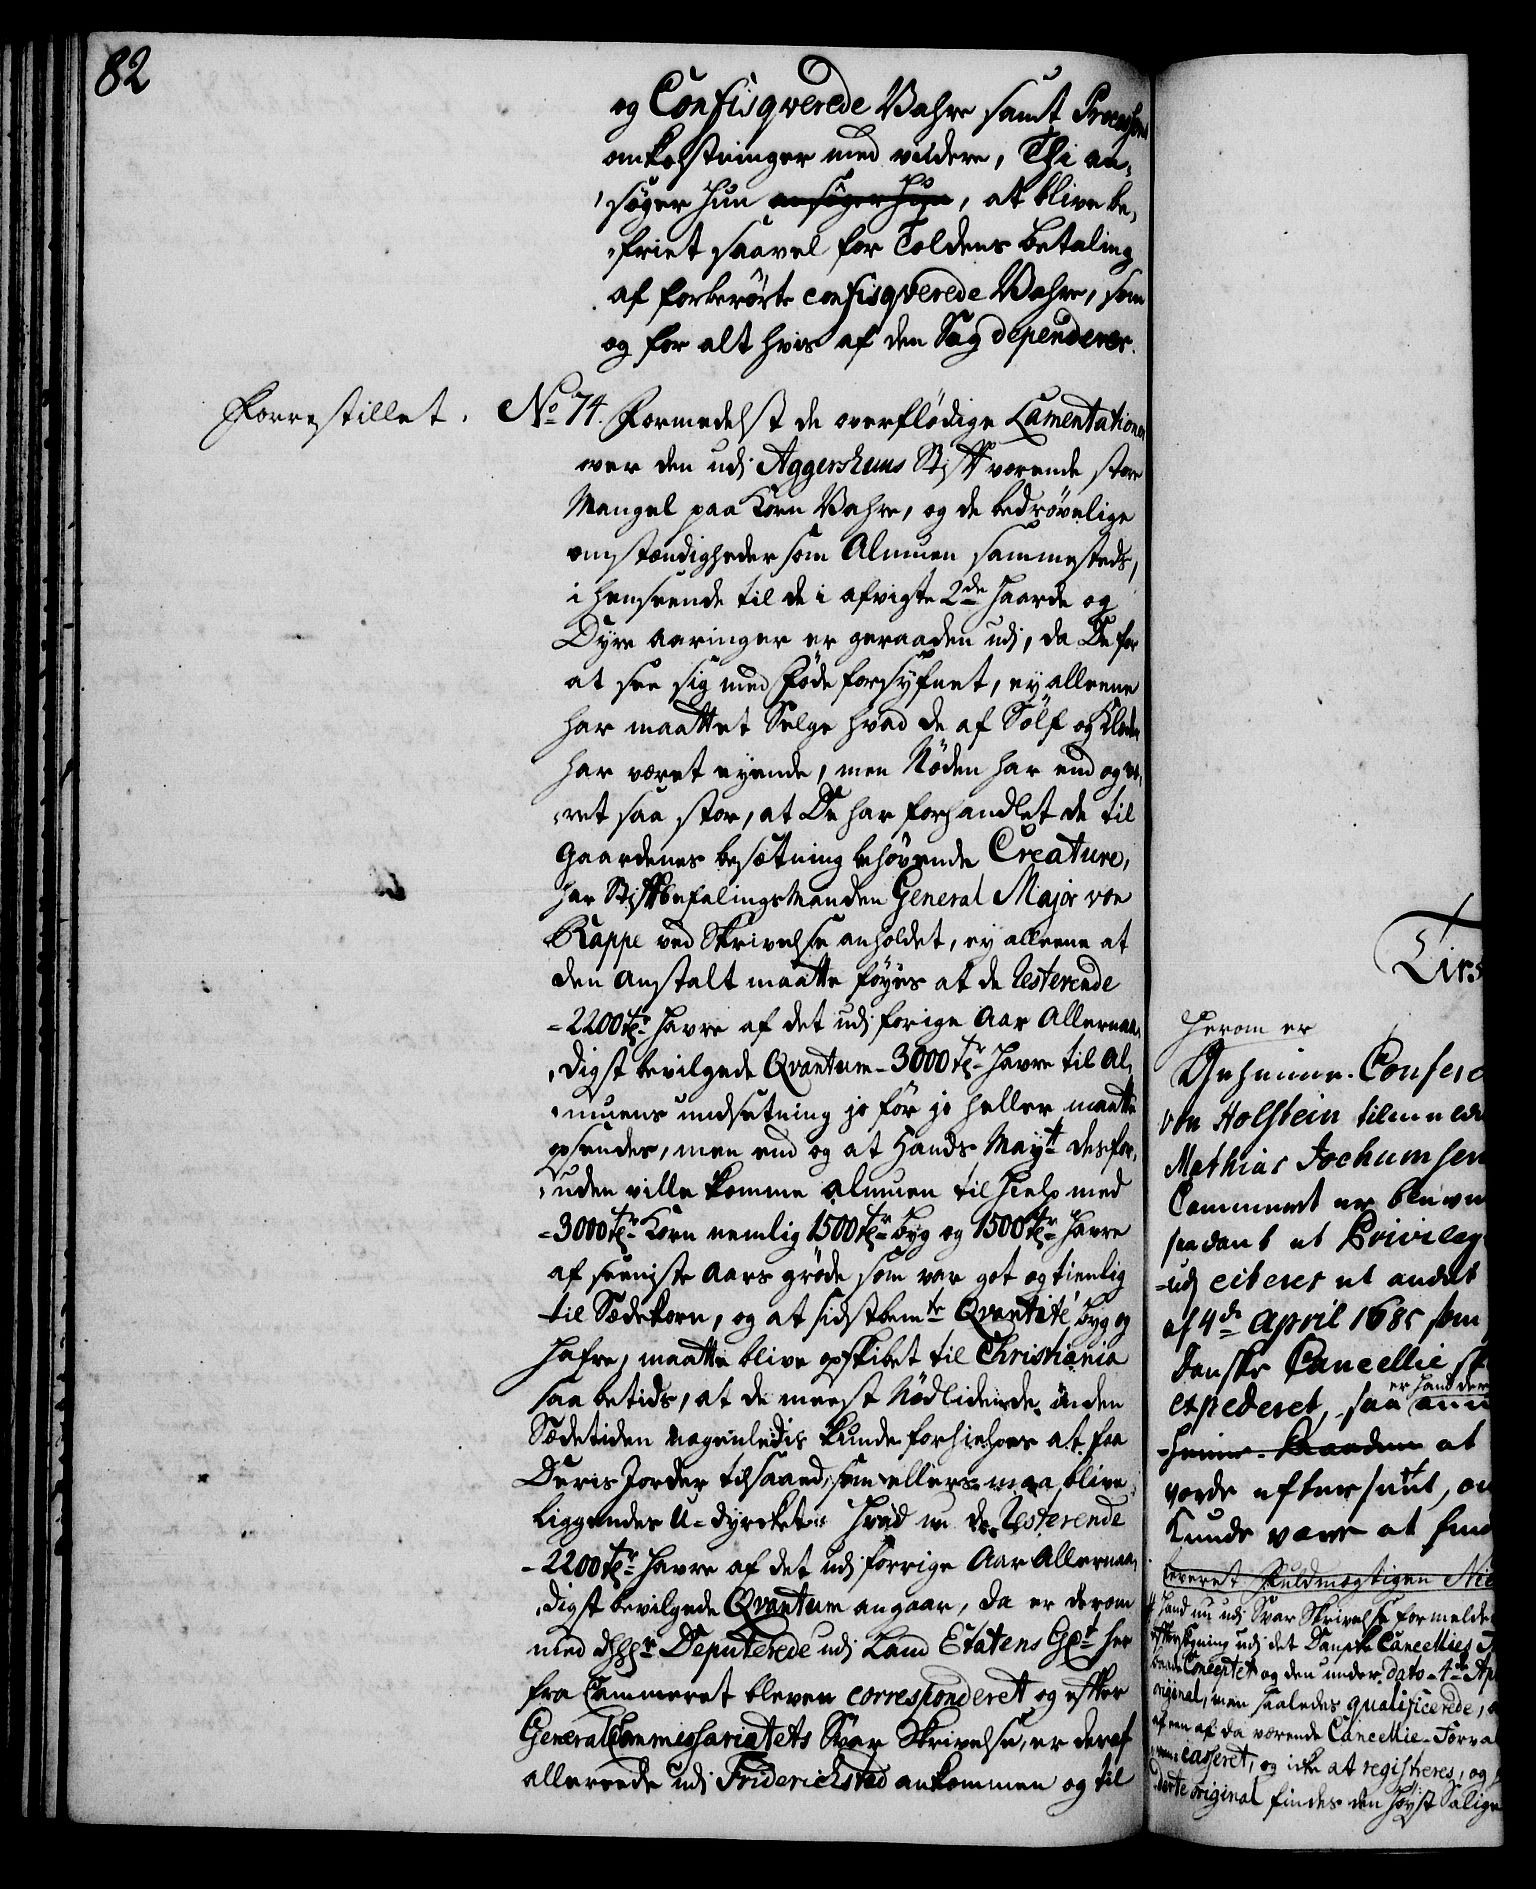 82
og Confisqverede Vahre samt Processens
omkostninger med videre, Thi an-
søger hun ansøger hun, at blive be-
friet saavel for Toldens betaling
af forberørte confisqverede Vahre, som
og for alt hvis af den Sag dependerer.
Forrestillet.
No 74. Formedelst de overflödige Lamentationer
over den udj Aggershuus Stift værende store
Mangel paa Korn Vahre, og de bedrøvelige
omstændigheder som Almuen sammesteds,
i henseende til de i afvigte 2de haarde og
Dyre Aaringer er geraaden udj, da De for
at see sig med Føde forsyfnet, ey alleene
har maattet Selge hvad de af Sölf og Klæder
har været eyende, men Nöden har end og væ-
ret saa stor, at De har forhandlet de til
Gaardenes besætning behövende Creature,
har StiftbefalingsManden General Major von
Rappe ved Skrivelse anholdet, ey alleene at
den Anstalt maatte föyes at de Resterende
-2200 tr. Havre af det udj forige Aar Allernaa-
digst bevilgede Qvantum - 3000 tr. Havre til Al-
muens undsetning jo för jo heller maatte
opsendes, men end og at Hands Mayt. desfor-
uden ville komme almuen til hielp med
-3000 tr. Korn nemlig 1500 tr. byg og 1500 tr. Havre
af seeniste Aars gröde som var got og tienlig
til Sædekorn, og at sidstbemte Qvantité byg og
Hafre, maatte blive opskibet til Christiania
saa betids, at de meest Nödlidende inden
Sædetiden nogenledis kunde forhielpes at faa
Deris Jorder tilsaaed, som ellers maa blive
liggendes U-dyrcket. Hvad nu de Resterende
-2200 tr. Havre af det udj forrige Aar Allernaa-
digst bevilgede Qvantum angaar, da er derom
med dhhr. Deputerede udj Land Etatens Gt. her
fra Cammeret bleven corresponderet og efter
General Commissariatets Svar Skrivelse, er deraf
allereede udj Friderichstad ankommen og til
Tirs
Herom er
Geheime-Confere
von Holstein tilmelde
Mathias Jochumsen
Cammeret er bleven
saadant et Privileg
udj citeres et andet
af 4de April 1685 som
danske Cancellie
er hand der
expederet, saa
at
vorde eftersendt, om
kunde være at
leveret Fuldmægtigen Nie
Hand nu udj Svar Skrivelse formelder
Eftersögning udj det Danske Cancellies
baade Conceptet og den under dato 4de Ap
original, men saaledes qualificerede,
af en af da værende Cancellie-Forva
casseret, og icke at registreres, og
original findes den Höyst Salige